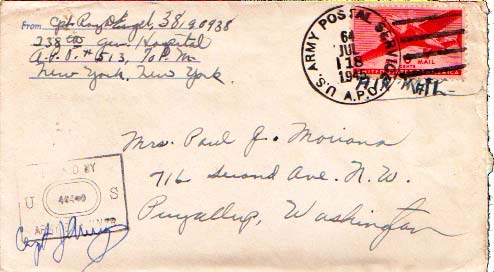 From Cpl. Roy 38190938
238th Gen. Hospital
A.P.O. # 513, % P.M.
New York, New York.
U.S. ARMY POSTAL SERVICE
64
JUL
18
194
A.P.O.
AIR MAIL
CENTS
MAIL
UNITED STATES OF AMERICA
Mrs. Paul J. Moriana
716 Second Ave. N.W.
Puyallup, Washington
D BY
U S
ARMY
Capt J